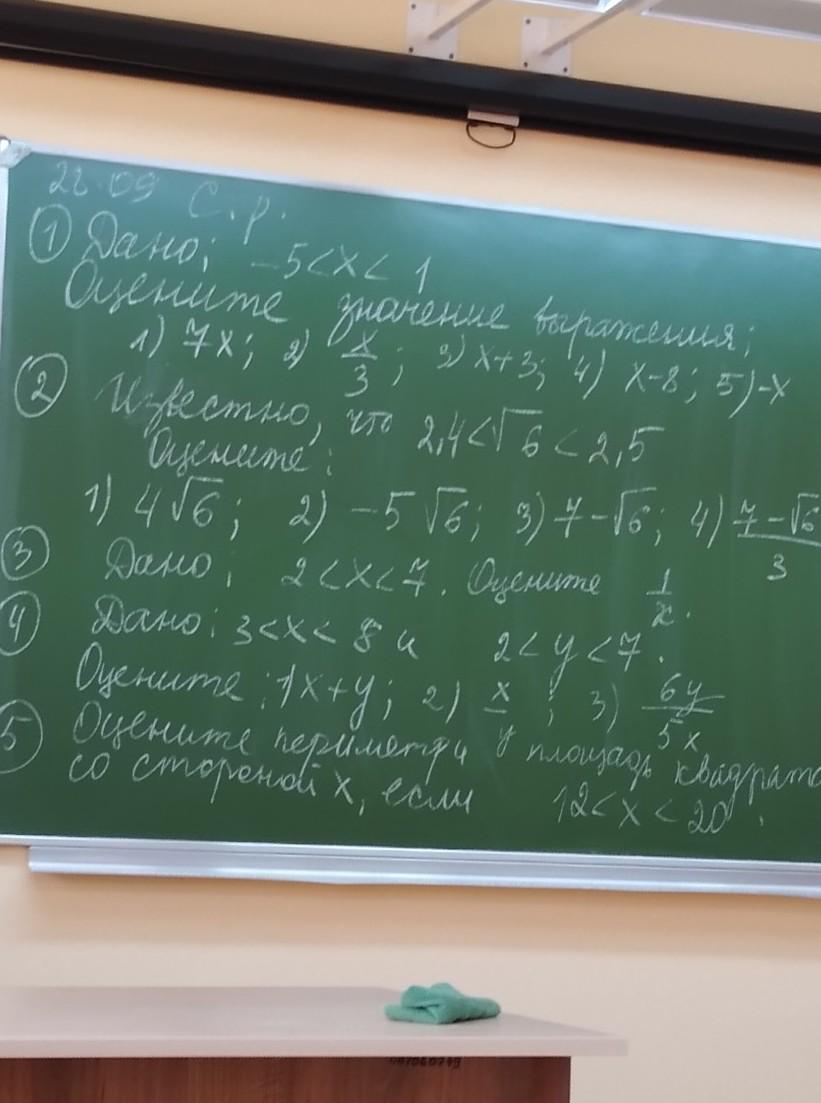 22.09 С.р.
① Дано: -5<x< 1
Оцените значение выражения:
1) 7x; 2) x/3; 3) x+3; 4) x-8; 5)-x
② Известно, что 2,4<√6<2,5
Оцените:
1) 4√6; 2) -5√6; 3) 7-√6; 4) 7-√6/3
③ Дано: 2<x<7. Оцените 1/x.
④ Дано: 3<x<8 и 2<y<7.
Оцените: 1)x+y; 2) x/y; 3) 6y/5x
⑤ Оцените периметр и площадь квадрата
со стороной x, если 12<x<20.